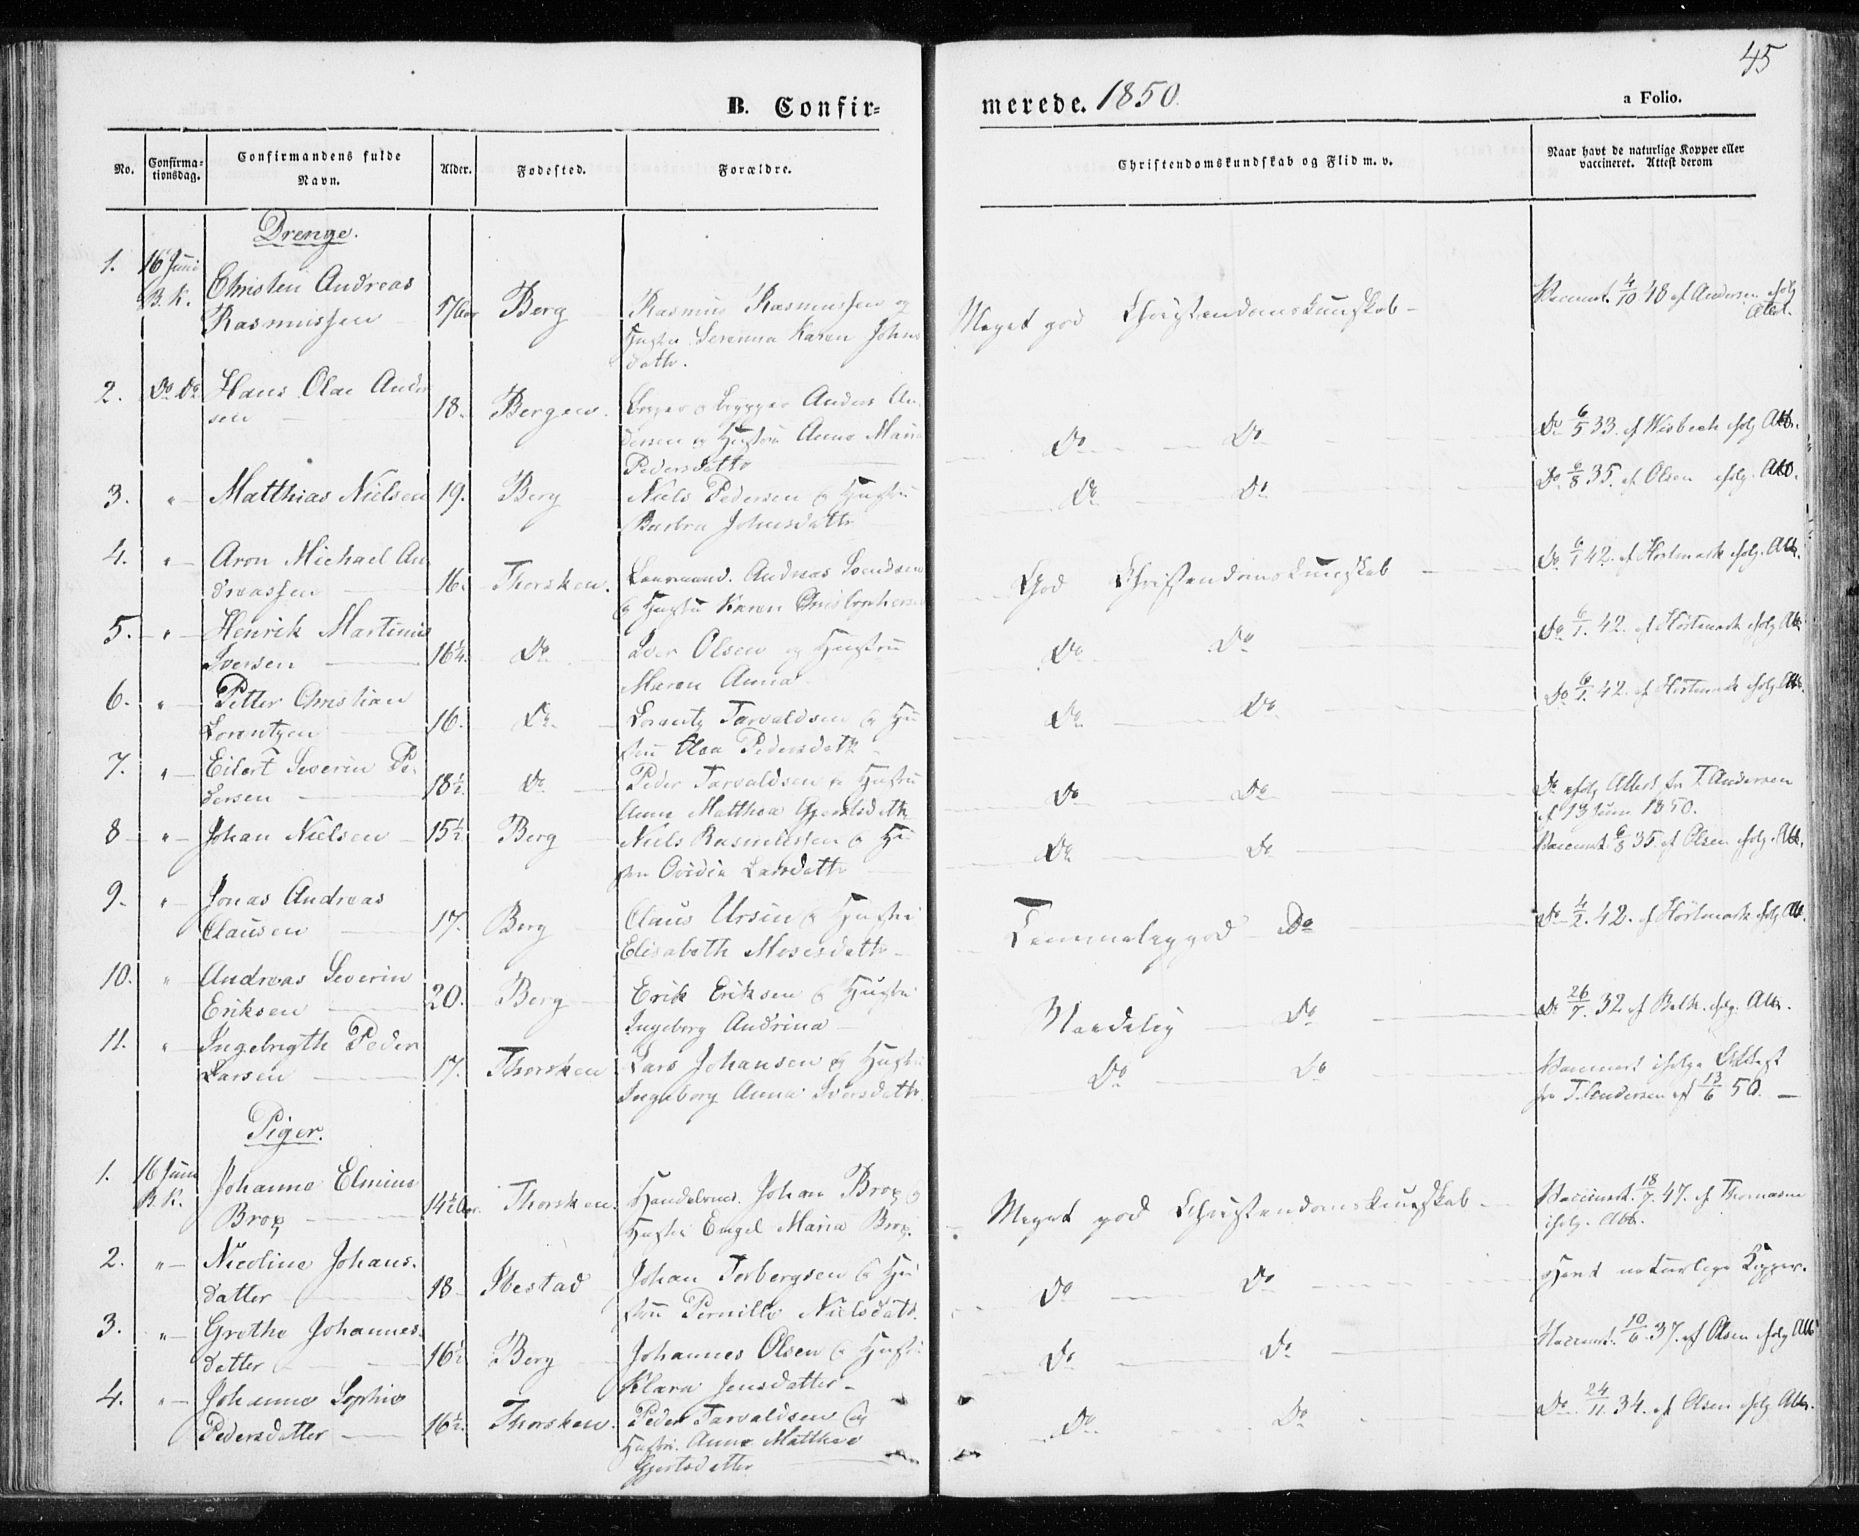 45
B. Confir-
merede. 1850.
a Folio.
No.
Confirma-
tionsdag.
Confirmandens fulde
Navn.
Alder.
Fødested.
Forældre.
Christendomskundskab og Flid m. v.
Naar havt de naturlige Kopper eller
vaccineret. Attest derom
Drenge.
1. 16 Juni Christen Andreas
B. K. Rasmussen 17 Aar Berg Rasmus Rasmussen og
Hustru Serenna Karen Johns
datr.
Meget god Christendomskundskab
Vaccinert. 4/10 48 af Andersen ifølg
Attest.
2. Do Do Hans Olai Ander
sen 18. Bergen. Anders An
dersen og Hustru Anne Maria
Pedersdattr
Do Do
Do 6/5 33. af Wisbech ifølg Att.
3. " Matthias Nielsen 19. Berg Niels Pedersen & Hustru
Barbra Johnsdattr
Do Do
Do 6/8 35. af Olsen ifølg. Att.
4. " Aron Michael An
dreassen 16. Thorsken. Andreas Svendsen
& Hustru Karen Christophersd
God Christendomskundskab
Do 6/1 42. af Hortmark ifølg. Att.
5. " Henrik Martinus
Iversen 16 1/4. Do Iver Olsen og Hustru
Maren Anna
Do Do
Do 6/1. 42. af Hortmark ifølg Att
6. " Petter Christian
Lorentzen 16. Do Lorentz Torvaldsen & Hu
stru Olea Pedersdattr
Do Do
Do 6/1. 42. af Hortmark ifølg Att.
7. " Eilert Severin Pe-
dersen 18 1/2 Do Peder Torvaldsen & Hustru
Anne Matthea Gjertsdattr
Do Do
Do ifølg Attest fra T. Andersen
af 13 Juni 1850.
8 " Johan Nielsen 15 1/2 Berg Niels Rasmussen & Hu
stru Larsdattr
Do Do
Vaccinert 6/8 35. af Olsen ifølg. Att.
9. " Jonas Andreas
Clausen 17. Berg Claus Ursin & Hustru
Elisabeth Mosesdattr
Temmelig god Do
Do 4/2. 42. af Hortmark ifølg Att.
10. " Andreas Severin
Eriksen 20. Berg Erik Eriksen & Hustru
Ingeborg Andrina
Maadelig Do
Do 26/7. 32. af Balk. ifølg. Att.
11. " Ingebrigth Peder
Larsen 17. Thorsken Lars Johansen & Hustru
Ingeborg Anna Iversdattr.
Do Do
Vaccinert ifølge Attest
fra T. Andersen af 13/6 50.
Piger.
1. 16 Juni Johanna Elmine
B. K. Brox 14 1/2 Aar. Thorsken Handelsmd. Johan Brox &
Hustru Engel Maria Brox.
Meget god Christendomskundskab
Vaccinert. 18/7. 47. af Thomasen
ifølg. Att.
2. " Nicoline Johans-
datter 18 Ibestad Johan Torbergsen & Hu
stru Pernille Nielsdatt.
Do Do
Havt naturlige Kopper.
3. " Grethe Johannes-
datter 16 1/2 Berg Johannes Olsen & Hustru
Klara Jensdatter
Do Do
Vaccinert. 10/6. 37. af Olsen ifølg Att
4. " Johanna Sophie
Pedersdatter 16 1/2. Thorsken. Peder Torvaldsen og
Hustru. Anne Matthea
Gjertsdatter
Do Do
Do 24/11. 34. af Olsen ifølg Att.